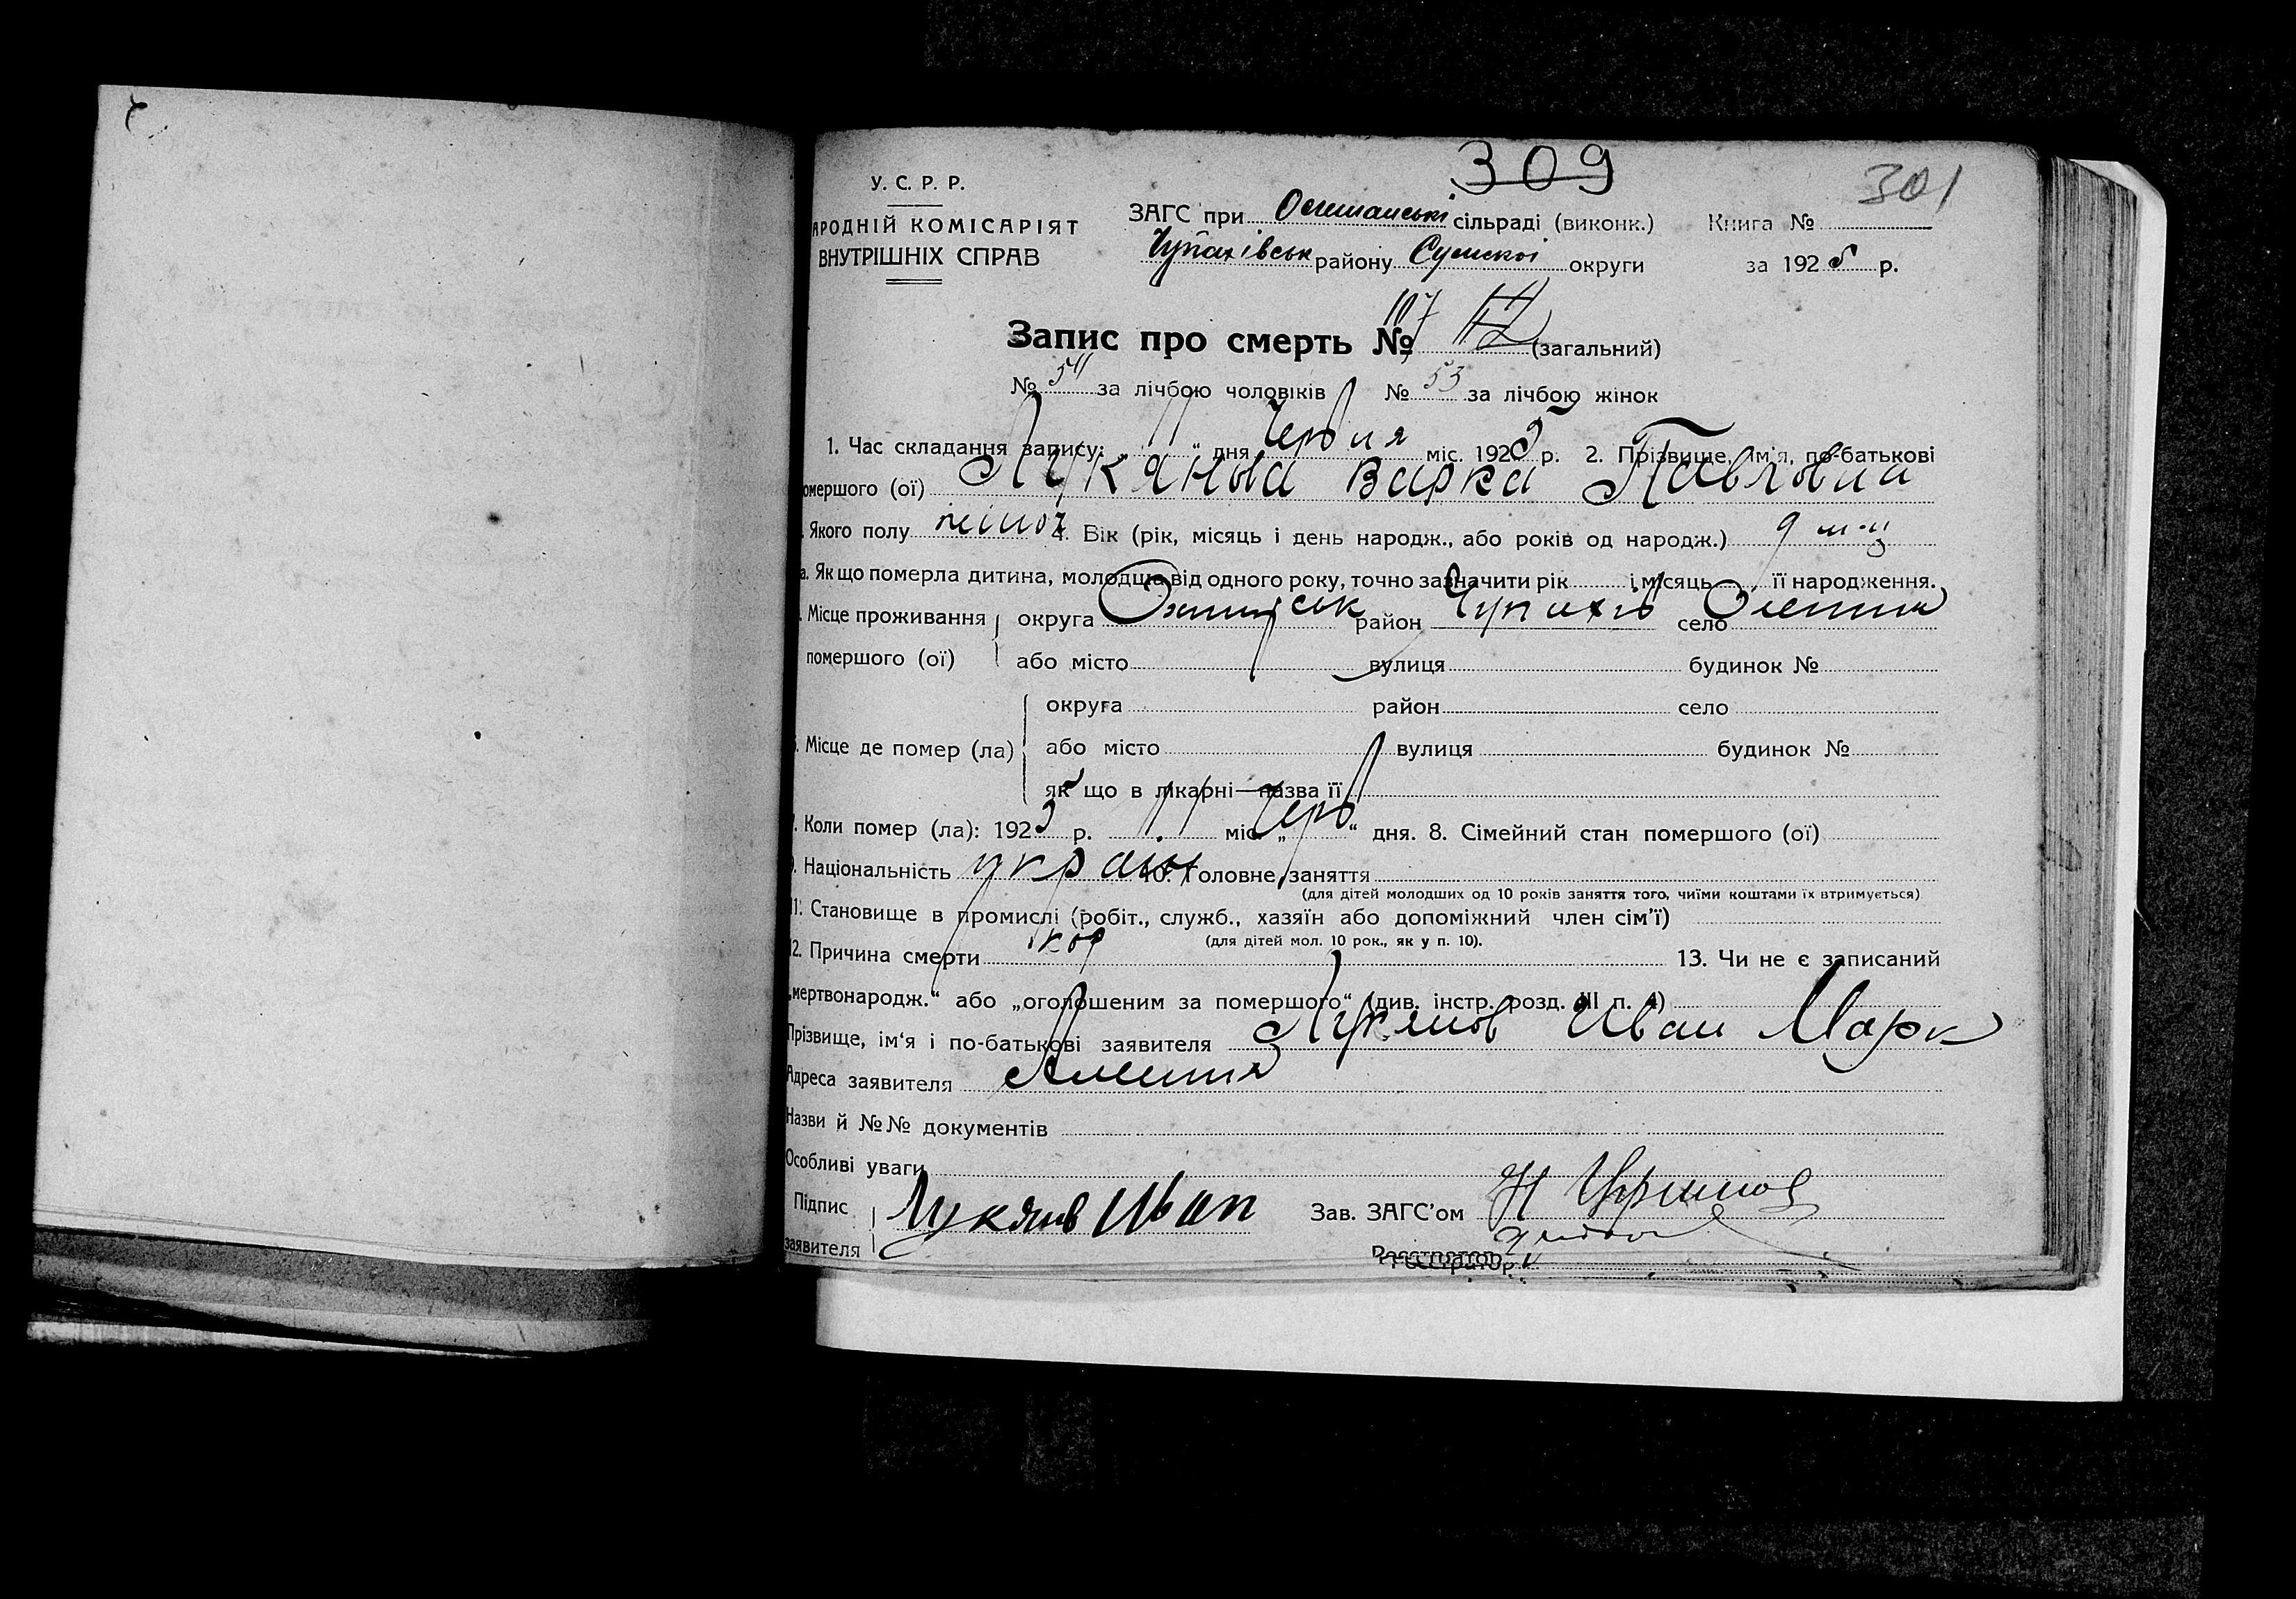 309
301
У. С. Р. Р.
АРОДНІЙ КОМІСАРІЯТ
ВНУТРІШНІХ СПРАВ
ЗАГС при сільраді (виконк.) Книга №
Чупахівськ району Сумскоі округи за 1925 р.
Запис про смерть № 107 (загальний)
№ 54 за лічбою чоловіків № 53 за лічбою жінок
1. Час складання запису: „ 11 “ дня Червня міс. 1925 р. 2. Прізвище, ім'я, по-батькові
омершого (ої) Лукянова Варка Павловна
. Якого полу жіноч 4. Вік (рік, місяць і день народж., або років од народж.) 9 м-ц
а. Як що померла дитина, молодша від одного року, точно зазначити рік і місяць її народження.
. Місце проживання округа Охтирськ район Чупахів село Олешня
помершого (ої) або місто вулиця будинок №
округа район село
. Місце де помер (ла) або місто вулиця будинок №
як що в лікарні—назва її
. Коли помер (ла): 1925 р. 11 міс. „ Черв “ дня. 8. Сімейний стан помершого (ої)
. Національність україн 10. Головне заняття
(для дітей молодших од 10 років заняття того, чиїми коштами їх втримується)
11. Становище в промислі (робіт., служб., хазяїн або допоміжний член сім'ї)
(для дітей мол. 10 рок., як у п. 10).
2. Причина смерти кор 13. Чи не є записаний
„мертвонародж.“ або „оголошеним за помершого“ (див. інстр. розд. III п. 4)
Прізвище, ім'я і по-батькові заявителя Лукянов Иван Марк
Адреса заявителя Алешня
Назви й №№ документів
Особливі уваги
Підпис
заявителя Лукянв Иван Зав. ЗАГС'ом
Реєстратор